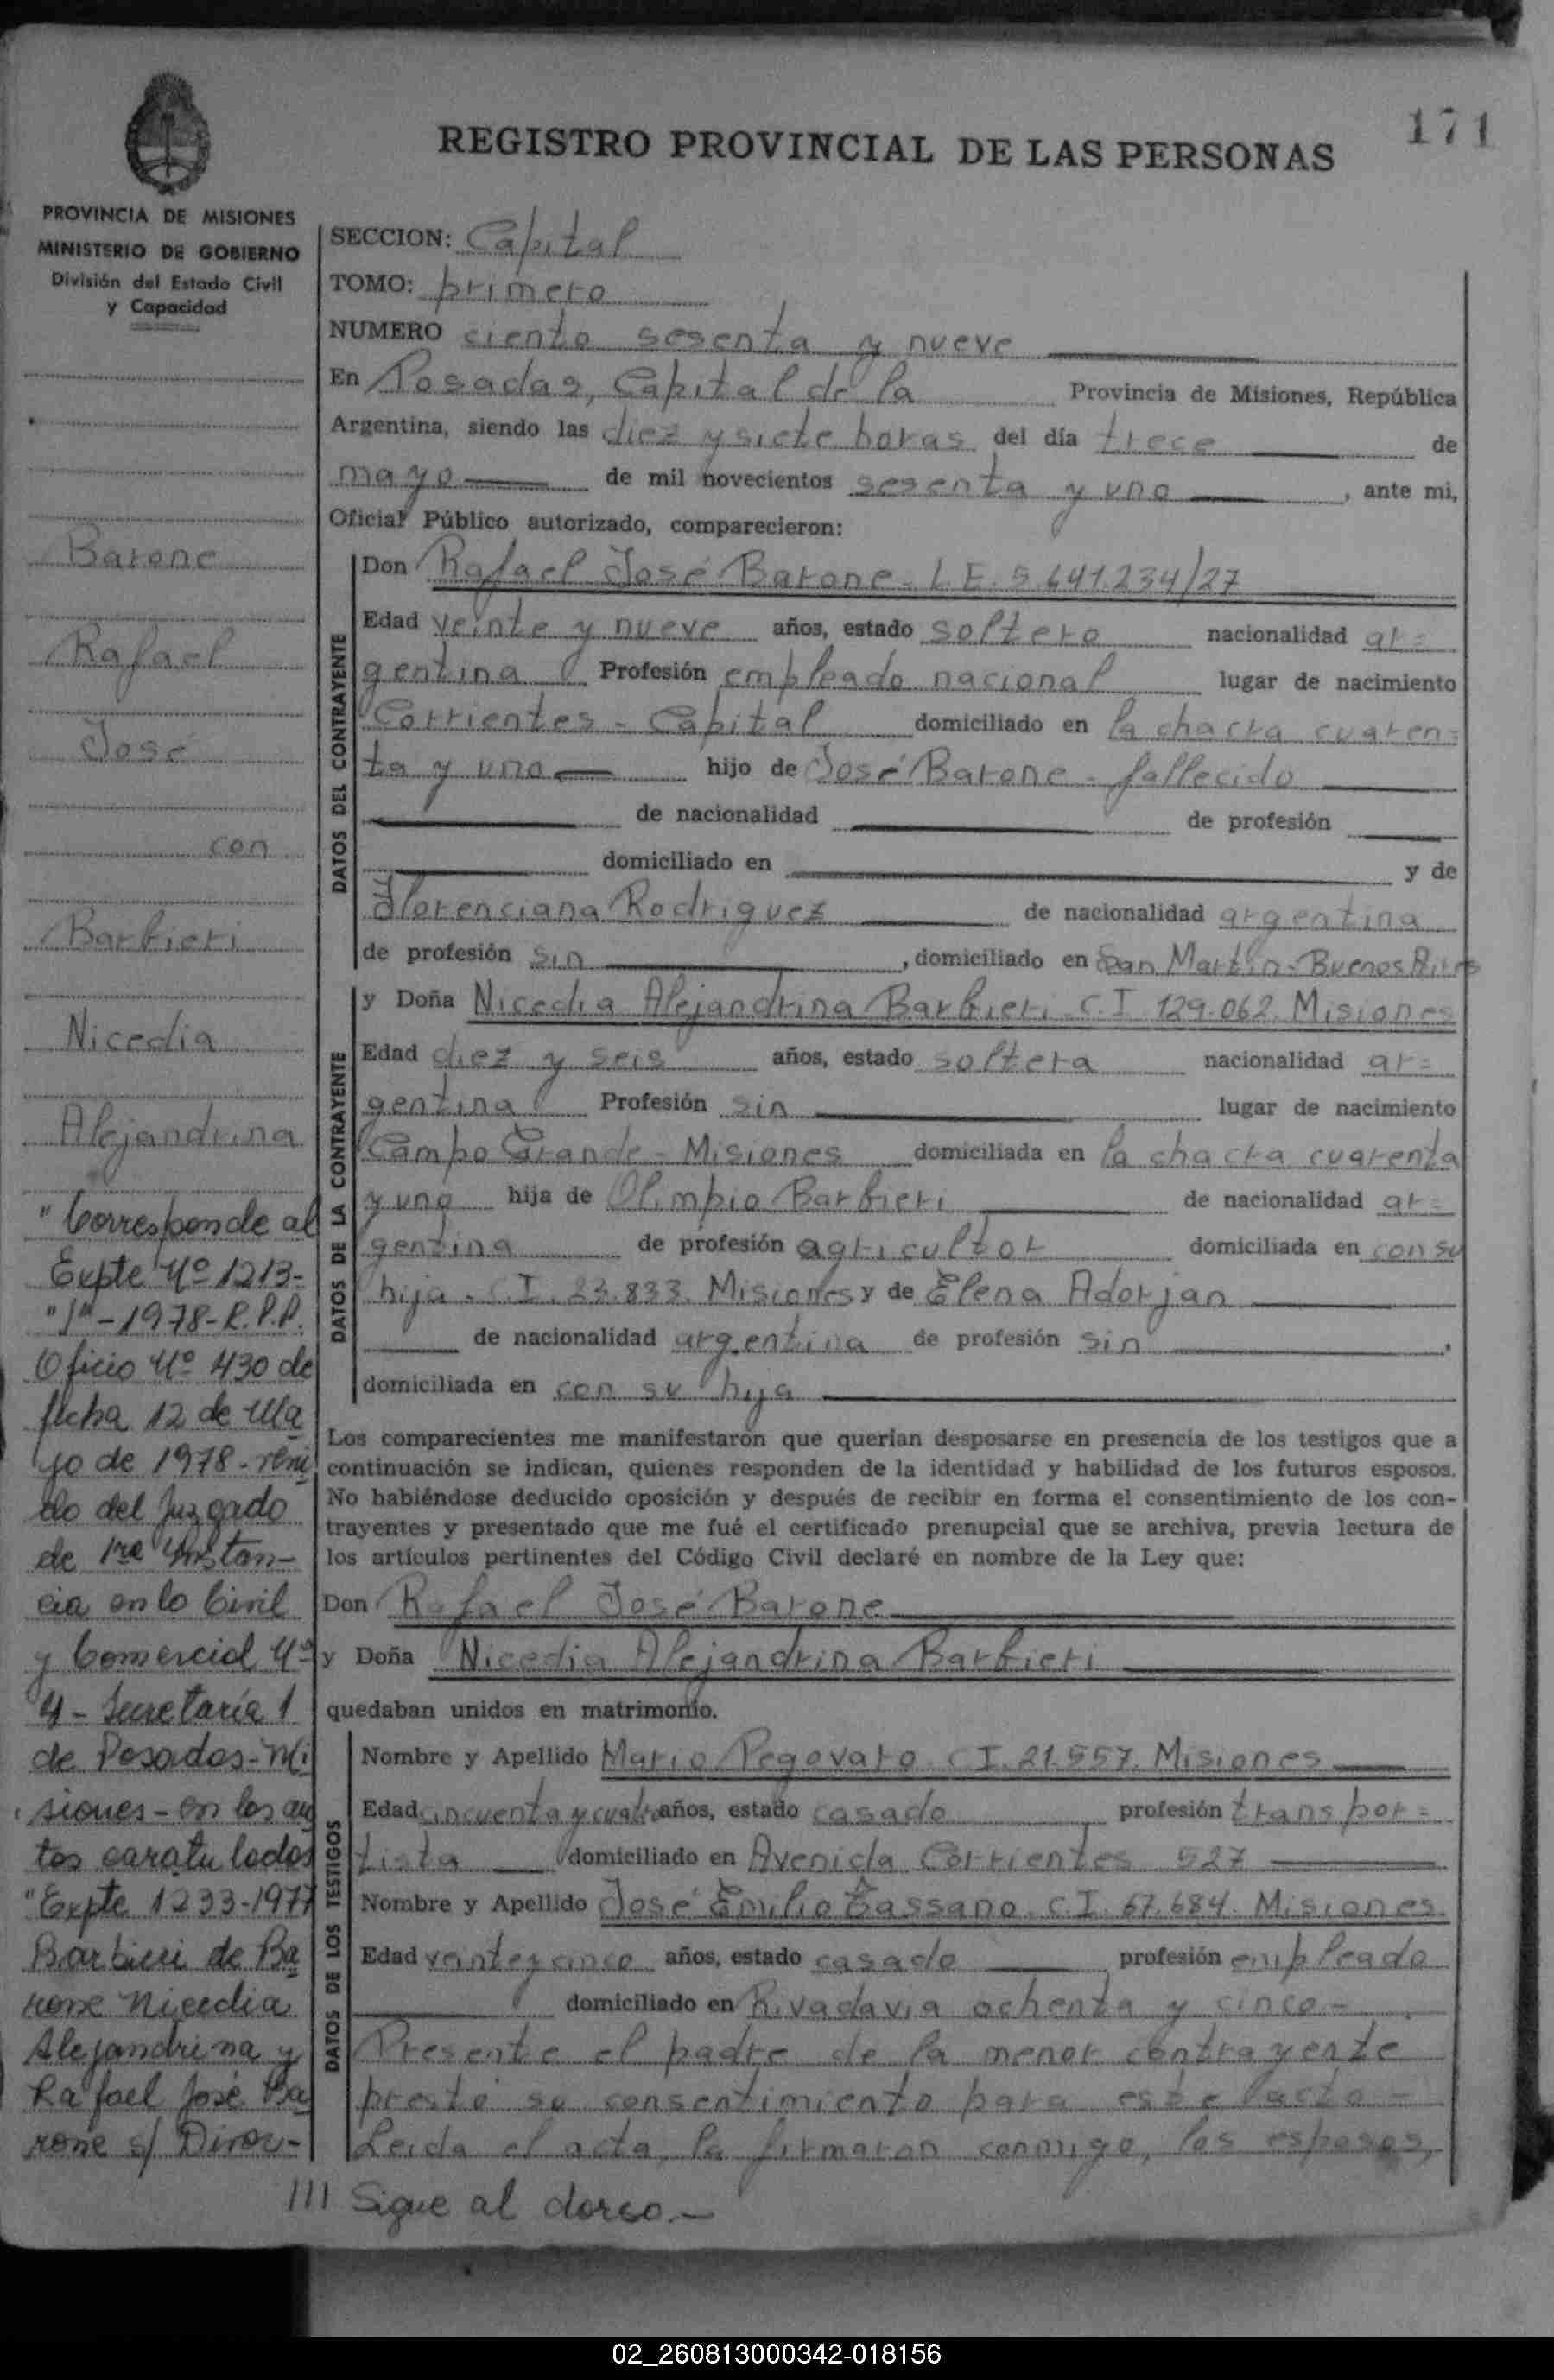 171
REGISTRO PROVINCIAL DE LAS PERSONAS
PROVINCIA DE MISIONES
MINISTERIO DE GOBIERNO
División del Estado Civil
y Capacidad
Barone
Rafael
José
con
Barbieri
Nicedia
Alejandrina
"Corresponde al
Expte Nº 1213-
"J"-1978-R.P.P.
Oficio Nº 430 de
fecha 12 de Ma
yo de 1978-remi
do del Juzgado
de 1ra Instan-
cia en lo Civil
y Comercial Nº
4-Secretaría 1
de Posadas-Mi
siones-en los au
tos caratulados
"Expte 1233-1977
Barbieri de Ba
rone Nicedia
Alejandrina y
Rafael José Ba
rone s/ Divor-
SECCION: Capital
TOMO: primero
NUMERO ciento sesenta y nueve
En Posadas, Capital de la Provincia de Misiones, República
Argentina, siendo las diez y siete horas del día trece de
mayo de mil novecientos sesenta y uno, ante mi,
Oficial Público autorizado, comparecieron:
DATOS DEL CONTRAYENTE
Don Rafael José Barone - L.E. 5.641.234/27
Edad veinte y nueve años, estado soltero nacionalidad ar=
gentina Profesión empleado nacional lugar de nacimiento
Corrientes - Capital domiciliado en la chacra cuaren=
ta y uno hijo de José Barone - fallecido
de nacionalidad de profesión
domiciliado en y de
Florenciana Rodriguez de nacionalidad argentina
de profesión sin, domiciliado en San Martin - Buenos Aires
DATOS DE LA CONTRAYENTE
y Doña Nicedia Alejandrina Barbieri C.I. 129.062. Misiones
Edad diez y seis años, estado soltera nacionalidad ar=
gentina Profesión sin lugar de nacimiento
Campo Grande - Misiones domiciliada en la chacra cuarenta
y uno hija de Olimpio Barbieri de nacionalidad ar=
gentina de profesión agricultor domiciliada en con su
hija. C.I. 23.833. Misiones y de Elena Adorjan
de nacionalidad argentina de profesión sin,
domiciliada en con su hija
Los comparecientes me manifestarón que querían desposarse en presencia de los testigos que a
continuación se indican, quienes responden de la identidad y habilidad de los futuros esposos.
No habiéndose deducido oposición y después de recibir en forma el consentimiento de los con-
trayentes y presentado que me fué el certificado prenupcial que se archiva, previa lectura de
los artículos pertinentes del Código Civil declaré en nombre de la Ley que:
Don Rafael José Barone
y Doña Nicedia Alejandrina Barbieri
quedaban unidos en matrimonio.
DATOS DE LOS TESTIGOS
Nombre y Apellido Mario Pegovaro C.I. 21.557. Misiones
Edad cincuenta y cuatro años, estado casado profesión transpor=
tista domiciliado en Avenida Corrientes 527
Nombre y Apellido José Emilio Bassano C.I. 67.684. Misiones.
Edad veinte y cinco años, estado casado profesión empleado
domiciliado en Rivadavia ochenta y cinco-
Presente el padre de la menor contrayente
prestó su consentimiento para este acto-
Leida el acta, la firmaron conmigo, los esposos,
III Sigue al dorso.-
02_260813000342-018156